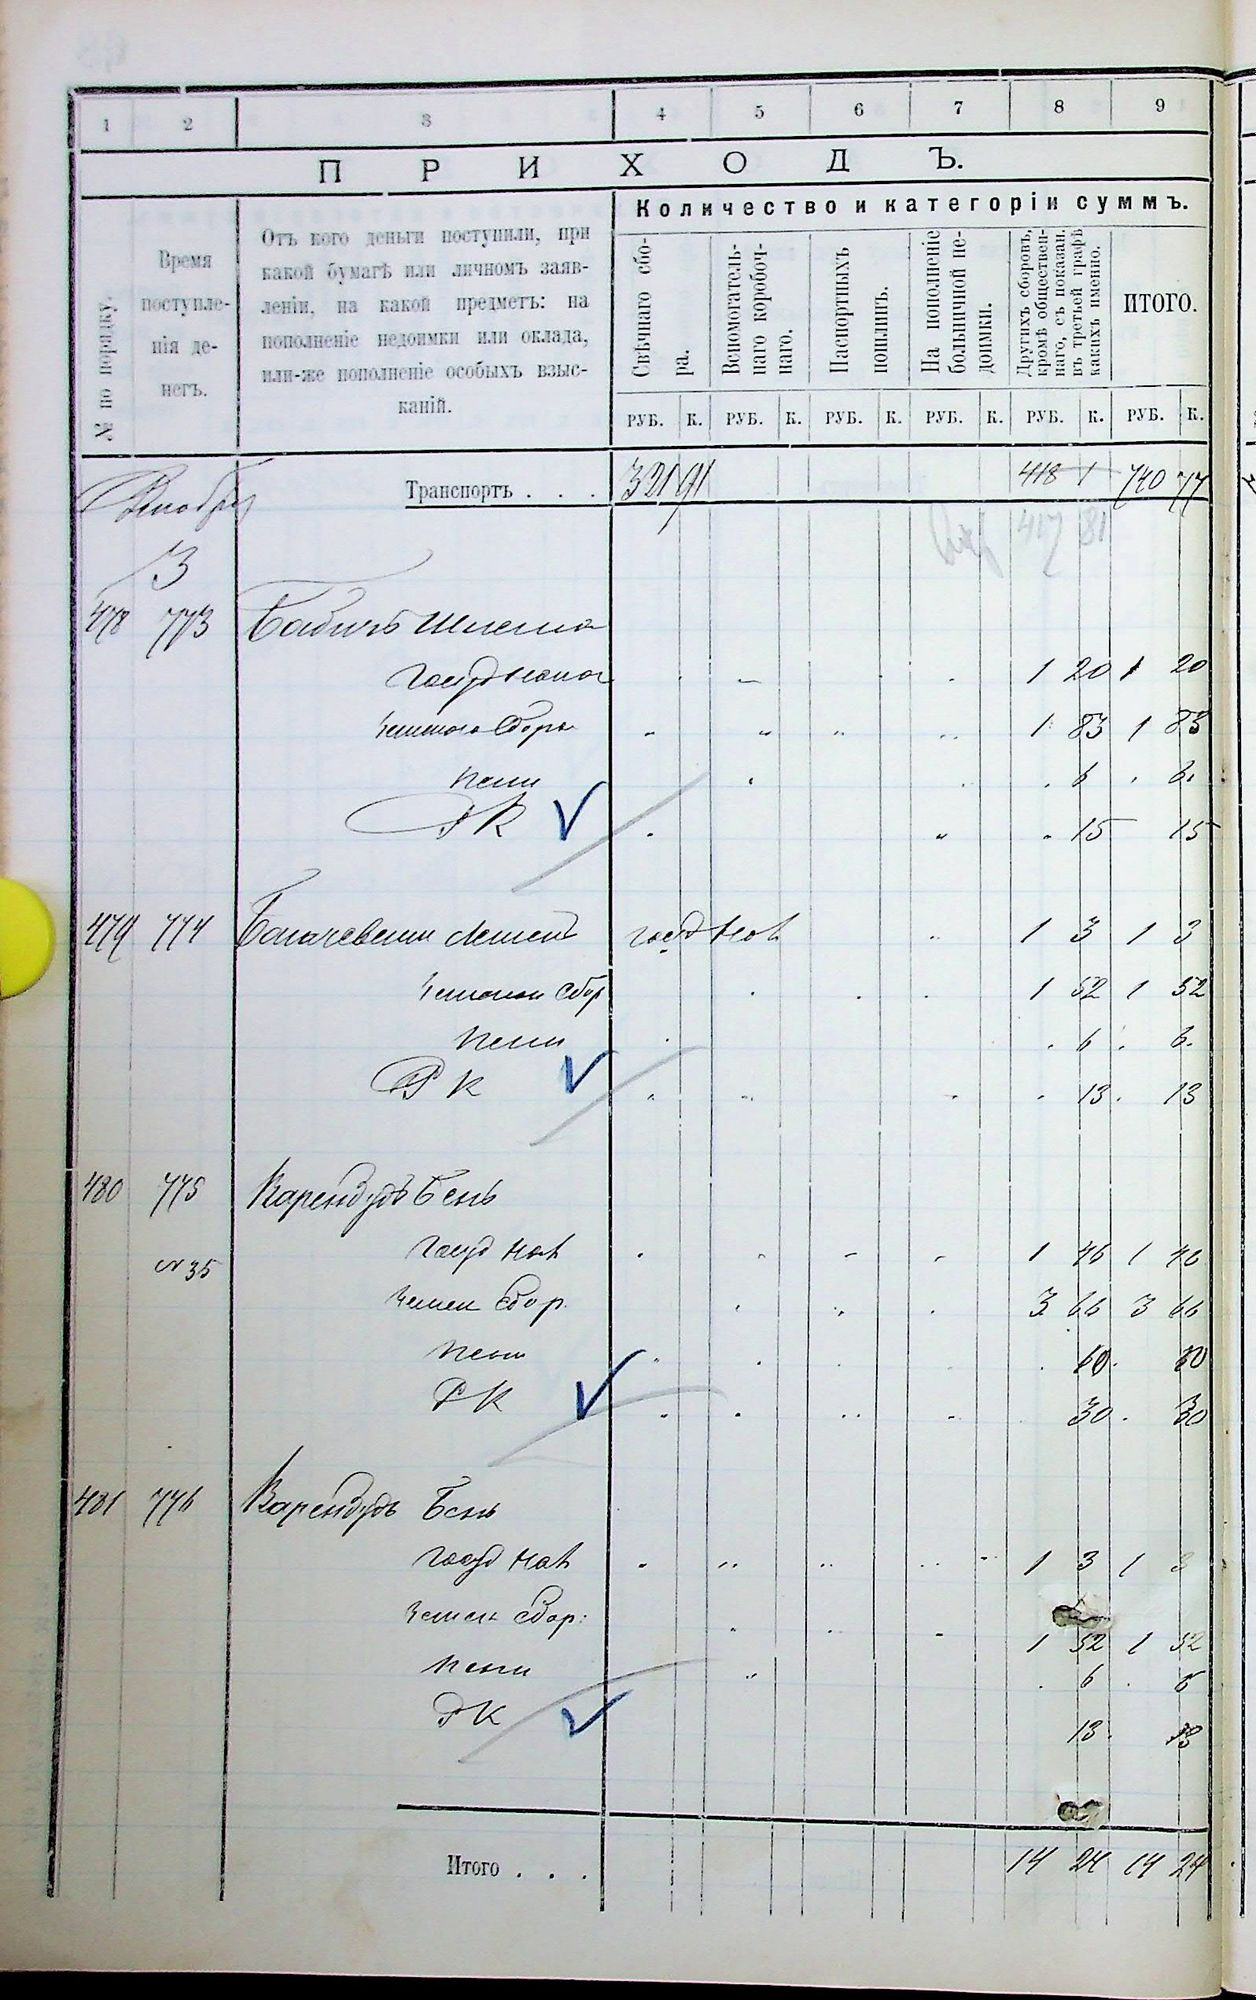 1 2 3 4 5 6 7 8 9
ПРИХОДЪ.
№ по порядку.
Время
поступле-
нія де-
негъ.
Отъ кого деньги поступили, при
какой бумагѣ или личномъ заяв-
леніи, на какой предметъ: на
пополненіе недоимки или оклада,
или-же пополненіе особыхъ взыс-
каній.
Количество и категоріи суммъ.
Свѣчнаго сбо-
ра.
Вспомогатель-
наго коробоч-
наго.
Паспортныхъ
пошлинъ.
На пополненіе
больничной не-
доимки.
Другихъ сборовъ,
кромѣ обществен-
наго, съ показан.
въ третьей графѣ
какихъ именно.
ИТОГО.
РУБ. К. РУБ. К. РУБ. К. РУБ. К. РУБ. К. РУБ. К.
Декабрь Транспортъ . . . 321 91 418 1 740 77
417 81
3
478 773 Бабичъ Шлема
Госуд налог 1 20 1 20
Земскаго сбора 1 83 1 83
пени 6 6
РК 15 15
479 774 госуд нал 1 3 1 3
Земскаго сбор 1 52 1 52
пени 6 6
РК 13 13
480 775 Карендудъ Бень
№ 35 Госуд нал 1 46 1 46
Земск сбор. 3 66 3 66
пени 60 60
РК 30 30
481 776 Карендудъ Бень
Госуд нал 1 3 1 3
Земск сбор: 1 52 1 52
пени 6 6
РК 13 13
Итого . . . 14 24 14 24